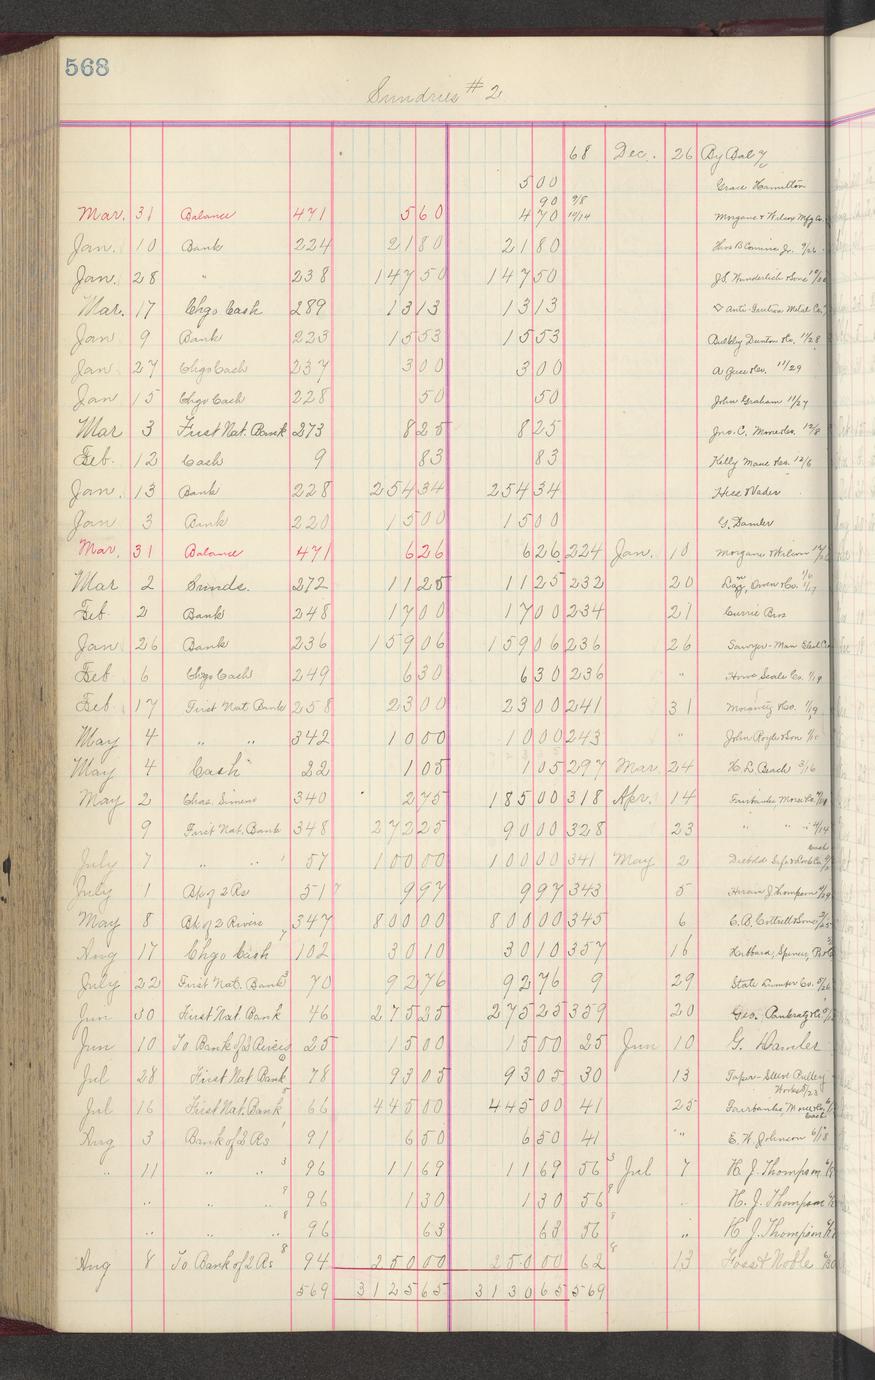 568
Sundries #2
68 Dec. 26 By Bal
500 Grace Hamilton
90 9/8
Mar. 31 Balance 471 560 470 10/14 Morgans & Wilcox Mfg Co.
Jan. 10 Bank 224 2180 2180 Thos B Jr. 9/26
Jan. 28 " 238 14750 14750 J.S. Wunderlich & Sons
Mar. 17 Chgo Cash 289 1313 1313 Anti-Friction Metal Co.
Jan 9 Bank 223 1553 1553 Bulkley Dunton & Co. 11/28
Jan 27 Chgo Cash 237 300 300 A & Co. 11/29
Jan 15 Chgo Cash 228 50 50 John Graham 11/27
Mar 3 First Nat. Bank 273 825 825 Jno. C. & Co. 12/8
Feb. 12 Cash 9 83 83 Kelly Maus & Co. 12/6
Jan. 13 Bank 228 25434 25434
Jan 3 Bank 220 1500 1500 G. Damler
Mar. 31 Balance 471 626 626 224 Jan. 10 Morgans & Wilcox
Mar 2 Sunds. 272 1125 1125 232 20 Owen & Co. 1/17
Feb. 2 Bank 248 1700 1700 234 21 Currie Bros
Jan 26 Bank 236 15906 15906 236 26 Sawyer-Man Elect Co
Feb 6 Chgo Cash 249 630 630 236 " Howe Scale Co. 1/19
Feb. 17 First Nat Bank 258 2300 2300 241 31 & Co. 1/19
May 4 " " 342 1000 1000 243 " John Royle & Son
May 4 Cash 22 105 105 297 Mar. 24 H. L. Beach 3/16
May 2 Chas. Simens 340 275 18500 318 Apr. 14 Fairbanks, Morse Co.
9 First Nat. Bank 348 27225 9000 328 23 " " " 4/14
July 7 " " 57 10000 10000 341 May 2 Diebold Safe & Lock Co
July 1 Bk of 2 Rs 51 997 997 343 5 Hiram J Thompson 4/29
May 8 Bk of 2 Rivers 347 80000 80000 345 6 C. B. Cottrell & Sons
Aug 17 Chgo Cash 102 3010 3010 357 16 Hibbard, Spencer, B & Co
July 22 First Nat. Bank 70 9276 9276 9 29 State Lumber Co. 5/26
Jun 30 First Nat Bank 46 27525 27525 359 20 Geo. Pankratz
Jun 10 To Bank of 2 Rivers 25 1500 1500 25 Jun 10 G. Damler
Jul 28 First Nat Bank 78 9305 9305 30 13 Taper-Sleeve Pulley
Works 5/23
Jul 16 First Nat. Bank 66 44500 44500 41 25 Fairbanks Morse Co
Aug 3 Bank of 2 Rs 91 650 650 41 " E. W. Johnson 6/18
" 11 " " 3 96 1169 1169 56 3 Jul 7 H. J. Thompson
" " " 9 96 130 130 56 9 " H. J. Thompson
" " " 8 96 63 63 56 8 " H J. Thompson
Aug 8 To Bank of 2 Rs 8 94 25000 25000 62 8 13 Noble
569 312565 313065 569